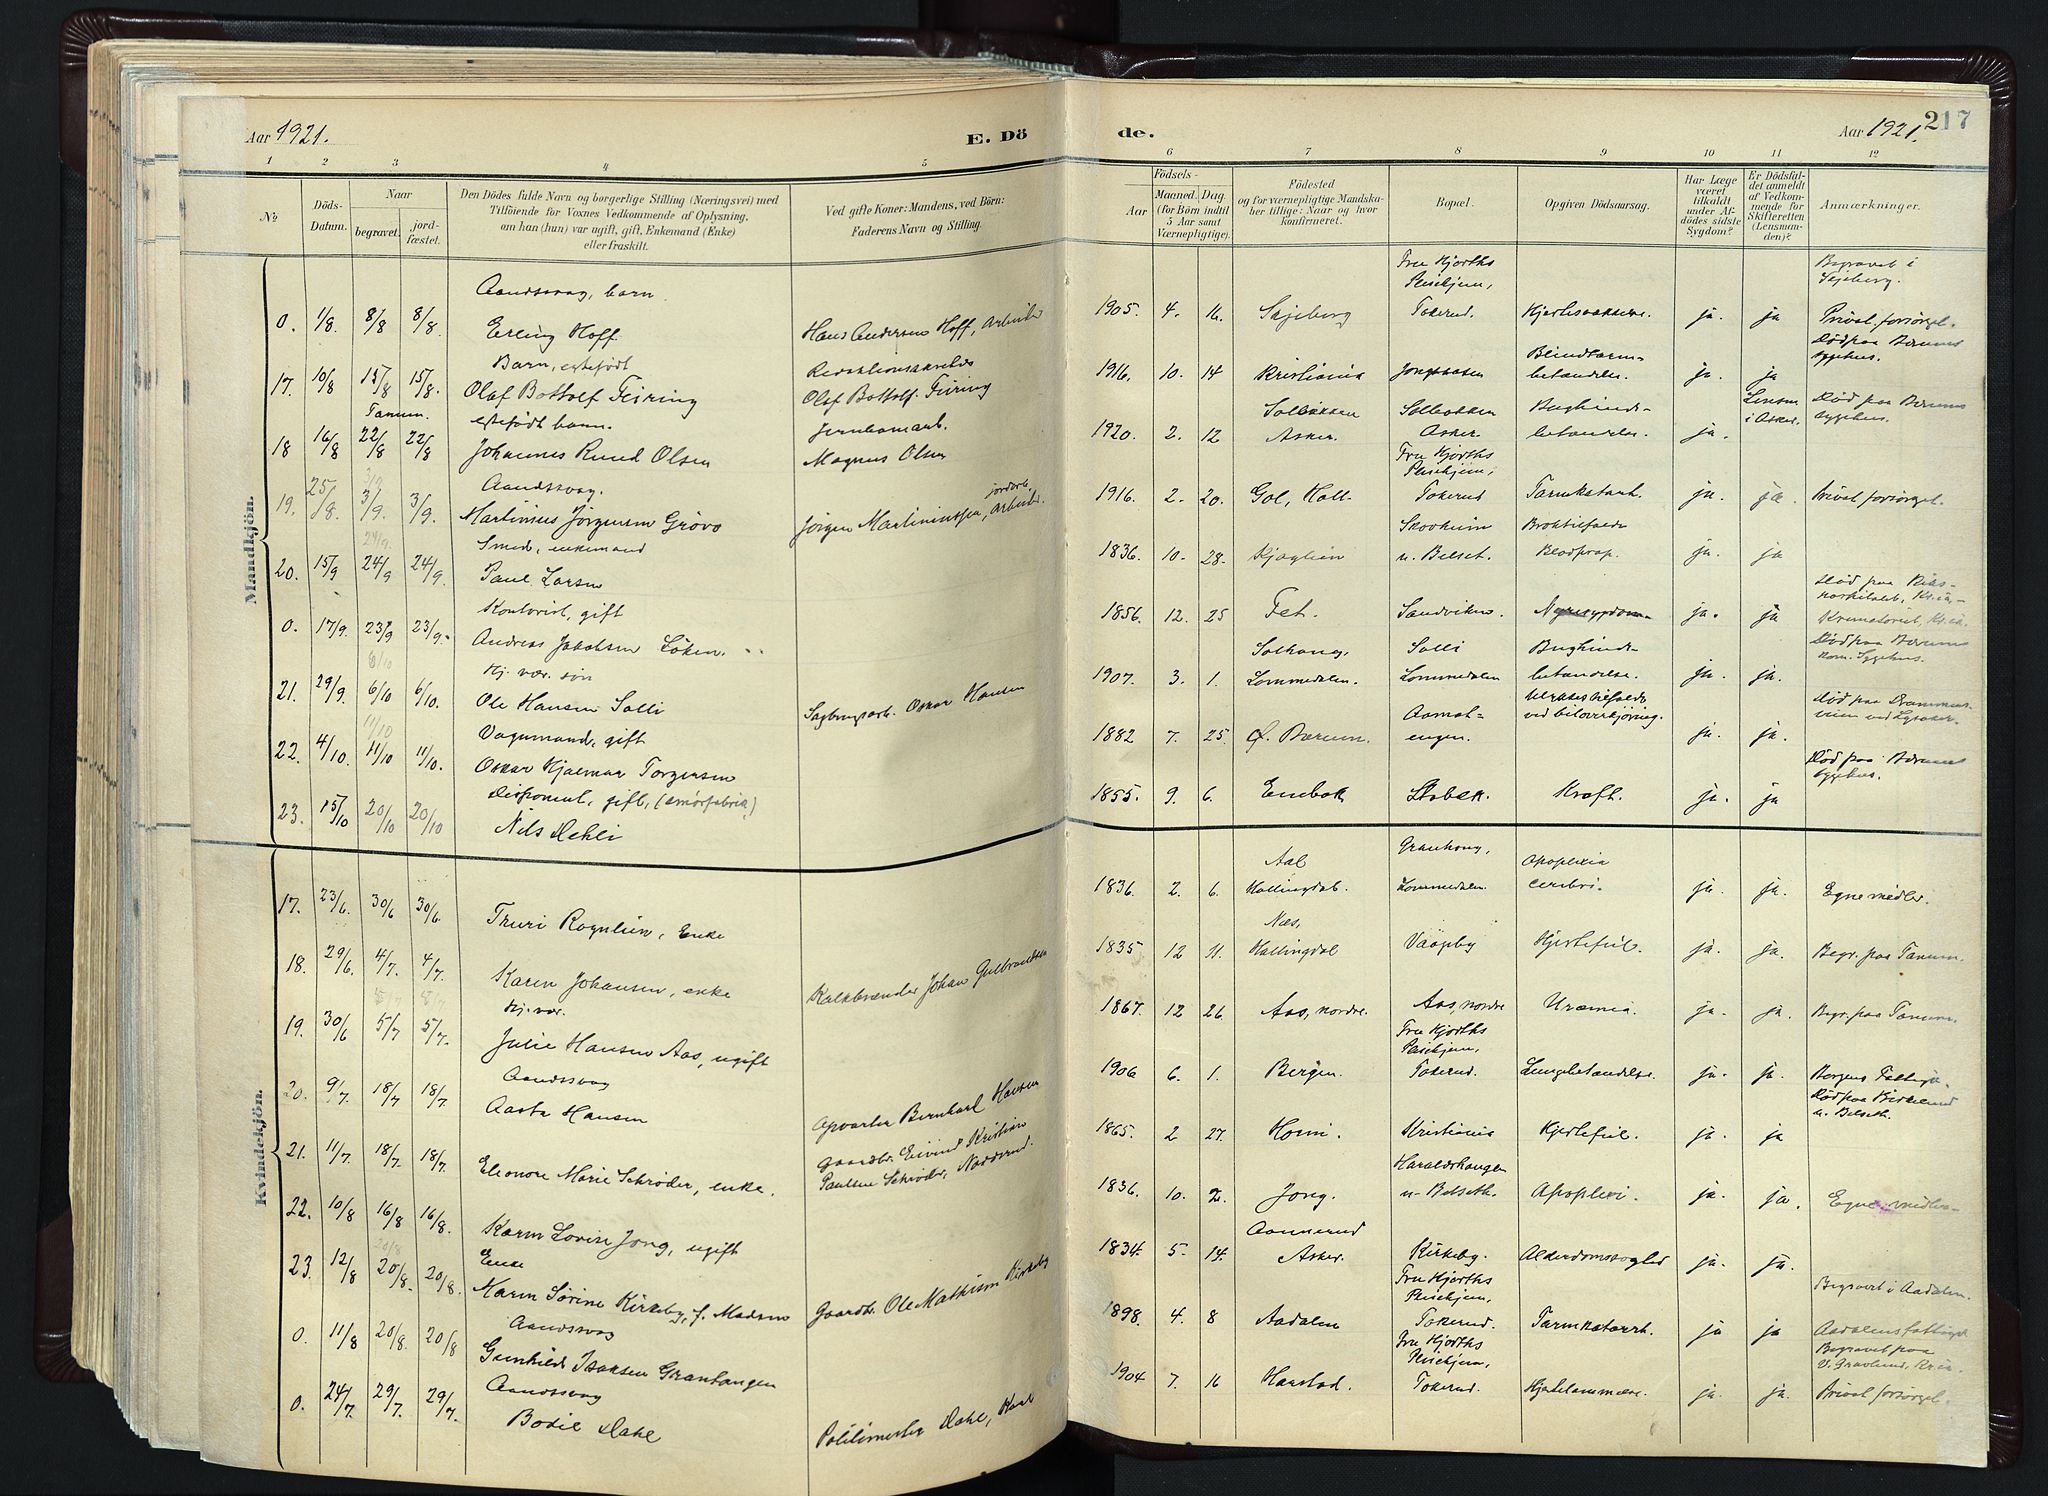 Aar 1921.
E. Dö
de.
Aar 1921.
217
1 2 3 4 5 6 7 8 9 10 11 12
No
Döds-
Datum.
Naar
begravet.
jord-
fæstet.
Den Dödes fulde Navn og borgerlige Stilling (Næringsvei) med
Tilföiende for Voxnes Vedkommende af Oplysning,
om han (hun) var ugift, gift, Enkemand (Enke)
eller fraskilt.
Ved gifte Koner: Mandens, ved Börn:
Faderens Navn og Stilling.
Födsels-
Aar
Maaned. Dag.
(for Börn indtil
5 Aar samt
Værnepligtige).
Födested
og for værnepligtige Mandska-
ber tillige: Naar og hvor
konfirmeret.
Bopæl.
Opgiven Dödsaarsag.
Har Læge
været
tilkaldt
under Af-
dödes sidste
Sygdom?
Er Dödsfal-
det anmeldt
af Vedkom-
mende for
Skifteretten
(Lensman-
den)?
Anmærkninger.
Mandkjön.
Aandssvag, barn.
Fru Hjorths
Pleiehjem,
Begravet i
Skjeberg.
0. 1/8. 8/8 8/8. Erling Hoff. Hans Andersen Hoff, Arbeider 1905. 4. 16. Skjeberg Tokerud. ja. ja Privat forsørget.
Barn, ektefødt
Blindtarm-
Død paa Bærums
sygehus.
17. 10/8 15/8 15/8. Olaf Bottolf Feiring Olaf Bottolf Feiring 1916. 10. 14 Kristiania betændelse. ja. ja
Tanum.
ektefødt barn.
Jernbanearb.
Solbakken
Solbakken
Bughinde-
Lensm.
i Asker.
Død paa Bærums
sygehus.
18 16/8 22/8 22/8 Johannes Ruud Olsen Magnus Olsen 1920. 2. 12 Asker. Asker. betændelse. ja.
Aandssvag.
jordarb.
Fru Hjorths
Pleiehjem,
19. 25/8. 3/9. 3/9. Martinius Jørgensen Grøvo Jørgen Martiniussen, Arbeider. 1916. 2. 20. Gol, Hall. Tokerud Tarmkatarrh. ja. ja. Privat forsørget.
Smed, enkemand
Skovheim
20. 15/9 24/9 24/9. Paul Larsen 1836. 10. 28. Kjaglien n. Belset. Blodprop. ja. ja
Kontorist, gift
Død paa Riks-
hospitalet, Kr.ia,
0. 17/9. 23/9 23/9. Andreas Jakobsen Løken. 1856. 12. 25 Fet. Sandviken. Nyresygdom ja. ja Krematoriet, Kr.ia.
Kj. vær. søn
Solhaug,
Solli
Bughinde-
Død paa Bærums
kom. Sygehus.
21. 29/9. 6/10 6/10. Ole Hansen Solli Sagbrugsarb. Oskar Hansen 1907. 3. 1. Lommedalen. Lommedalen betændelse. ja. ja.
Vognmand, gift
Ulykkestilfælde
ved biloverkjøring.
Død paa Drammens-
veien ved Lysaker.
22. 4/10. 11/10 11/10. Oskar Hjalmar Torgersen 1882 7. 25. Ø. Bærum. engen. ja. ja.
Disponent, gift, (smørfabrik)
Død paa Bærums
sygehus.
23. 15/10 20/10 20/10 Nils Dehli 1855. 9. 6. Enebak Stabæk. Kræft. ja. ja
Kvindekjön.
Aal
Apoplexia
17. 23/6. 30/6 30/6. Truri Rognlien, Enke 1836. 2. 6. Hallingdal. Lommedalen. cerebri. ja. ja. Egne midler.
Næs,
18. 29/6. 4/7. 4/7. Karen Johansen, enke Kalkbrænder Johan Gulbrandsen 1835. 12 11. Hallingdal Hjertefeil. ja. ja. Begr. paa Tanum.
Kj. vær.
19. 30/6 5/7 5/7. Julie Hansen Aas, ugift 1867. 12 26. Aas, nordre. Aas, nordre Uræmia. ja. ja. Begr. paa Tanum.
Aandssvag
Fru Hjorths
Pleiehjem,
20. 9/7. 18/7 18/7. Aasta Hansen Opvarter Bernhard Hansen 1906 6. 1. Bergen. Tokerud. Lungebetændelse. ja. ja. Bergens Fattigv.
Gaardbr. Eivind Kristian
Død paa
n. Belseth.
21. 11/7. 18/7. 18/7. Eleonore Marie Schrøder, enke. Paulsen Schrøder, Nadderud. 1865. 2 27. Kristiania Hjertefeil. ja. ja
Haraldshaugen
22. 10/8 16/8 16/8. Karen Lovise Jong, ugift 1836. 10. 2. Jong. n. Belseth. Apoplexi. ja. ja. Egne midler.
Enke
23. 12/8 20/8. 20/8. Maren Sørine Kirkeby, f. Madsen Gaardbr. Ole Mathisen Kirkeby 1834. 5. 14. Asker. Kirkeby. ja. ja.
Aandssvag
Fru Hjorths
Pleiehjem,
Begravet i Aadalen.
0. 11/8 20/8. 20/8 Gunhild Isaksen Granhaugen 1898. 4. 8 Aadalen Tokerud. Tarmkatarrh. ja ja Aadalens fattigv.
Aandssvag
Fru Hjorths
Pleiehjem,
Begravet paa
V. Gravlund, Kr.ia.
0. 24/7. 29/7. 29/7. Bodil Dahl Politimester Dahl, 1904 7. 16 Harstad. Tokerud. ja. ja. Privat forsørget.